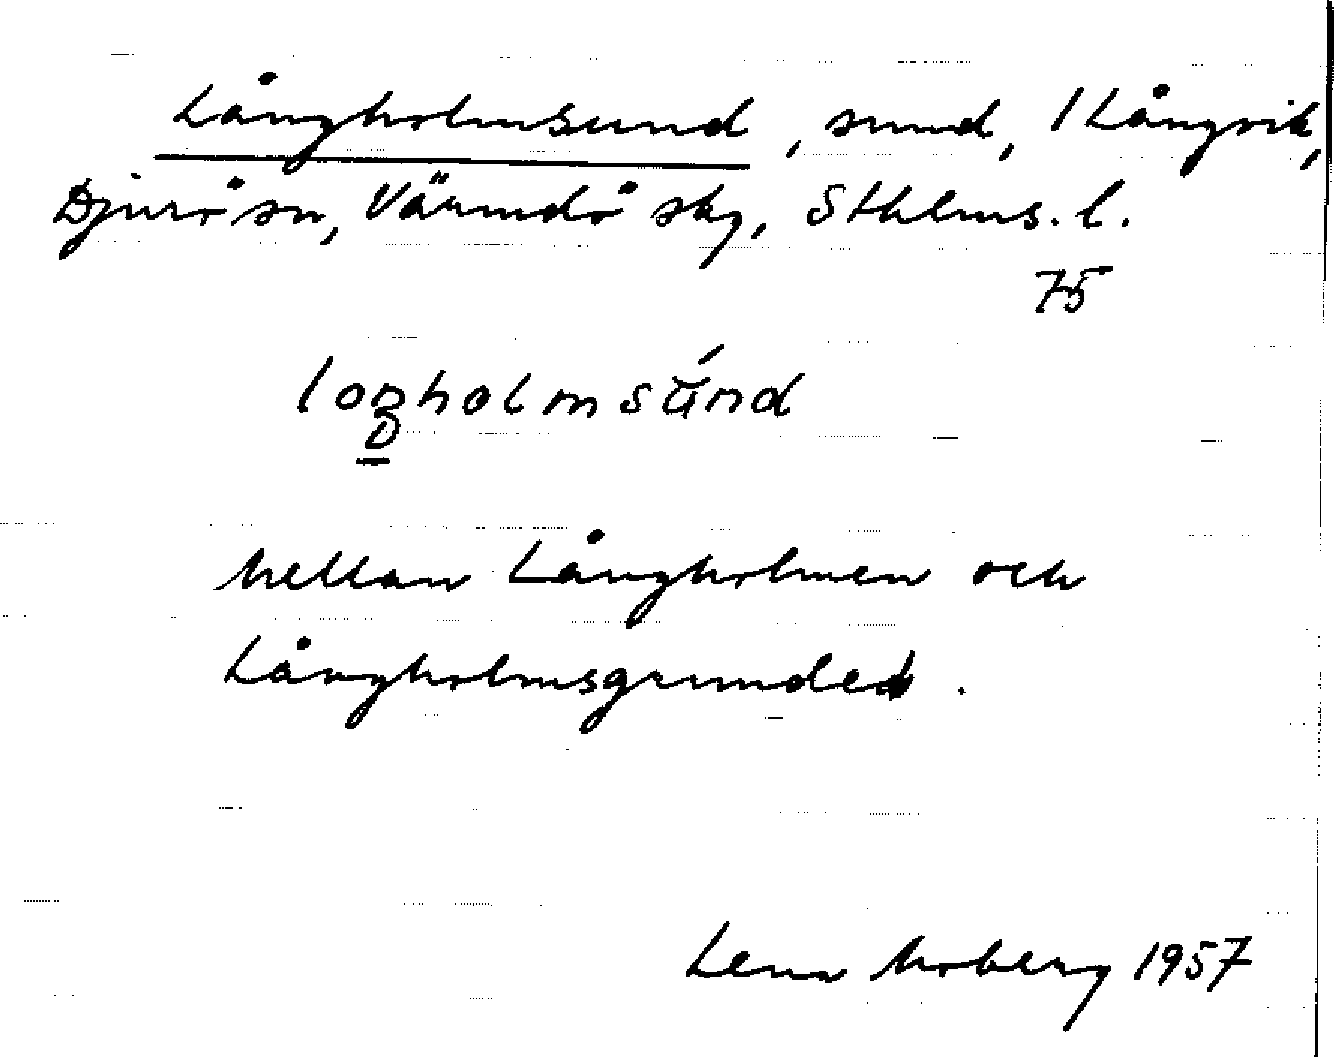 Långholmsund, sund, 1 Långvik,
Djurö sn, Värmdö skg, Sthlms. l.
75
loŋholmsu̇́nd
Mellan Långholmen och
Långholmsgrundet.
Lena Moberg 1957